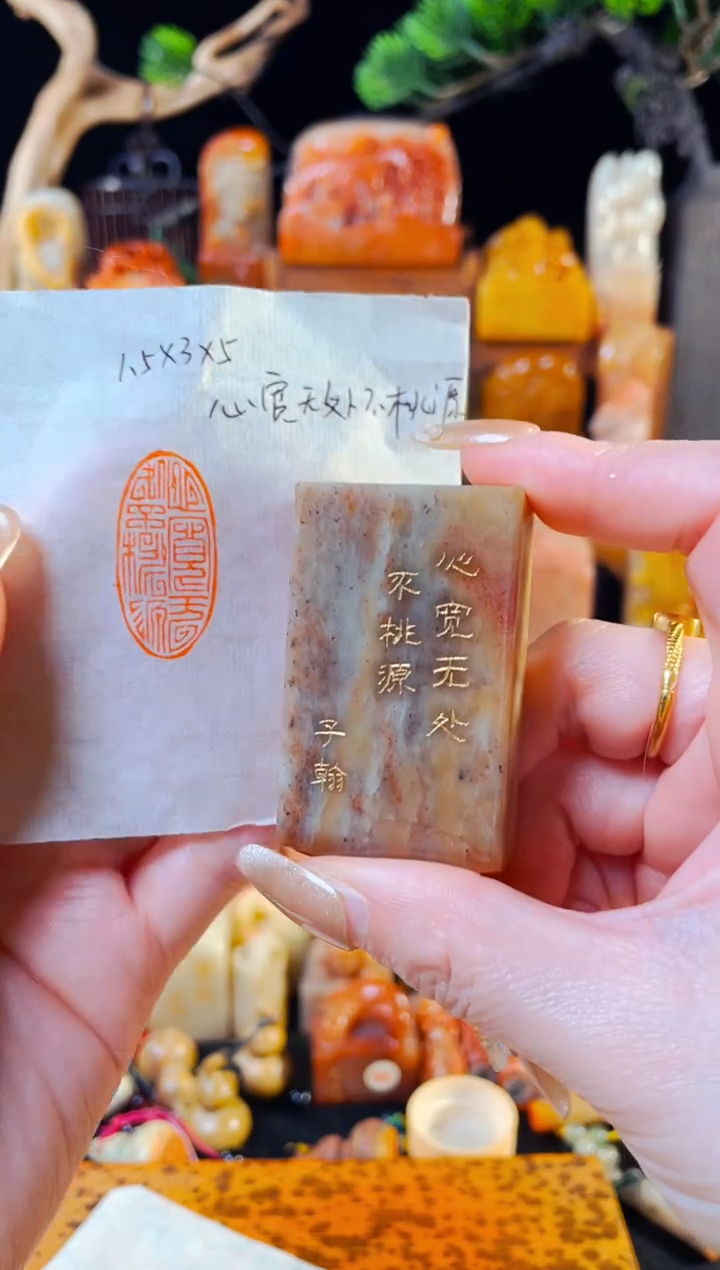 1.5×3×5
心宽无处不桃源
心宽无处
不桃源
子翰